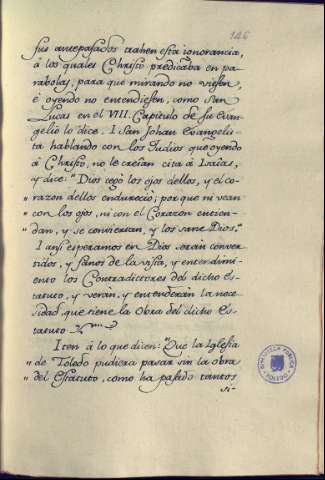 146
sus antepasados trahen esta ignorancia,
á los quales Christo predicaba en pa-
rabolas, para que mirando no viesen,
é oyendo no entendiesen, como San
Lucas en el VIII. Capitulo de su Evan-
gelio lo dice. I San Johan Evangelis-
ta hablando con los Judios que oyendo
á Christo, no le creían cita á Isaías,
y dice: "Dios cegó los ojos dellos, y el co-
" razon dellos endureció; por que ni vean
" con los ojos, ni con el Corazon encien-
" dan, y se conviertan, y los sane Dios."
I ansi esperamos en Dios serán conver-
tidos, y sanos de la vista, y entendimi-
ento los Contradictores del dicho es-
tatuto, y verán, y entenderán la nece-
sidad que tiene la Obra del dicho Es-
tatuto.
Iten á lo que dicen: "Que la Iglesia
" de Toledo pudiera pasar sin la obra
" del estatuto, como ha pasado tantos
si-
BIBLIOTECA PUBLICA
TOLEDO